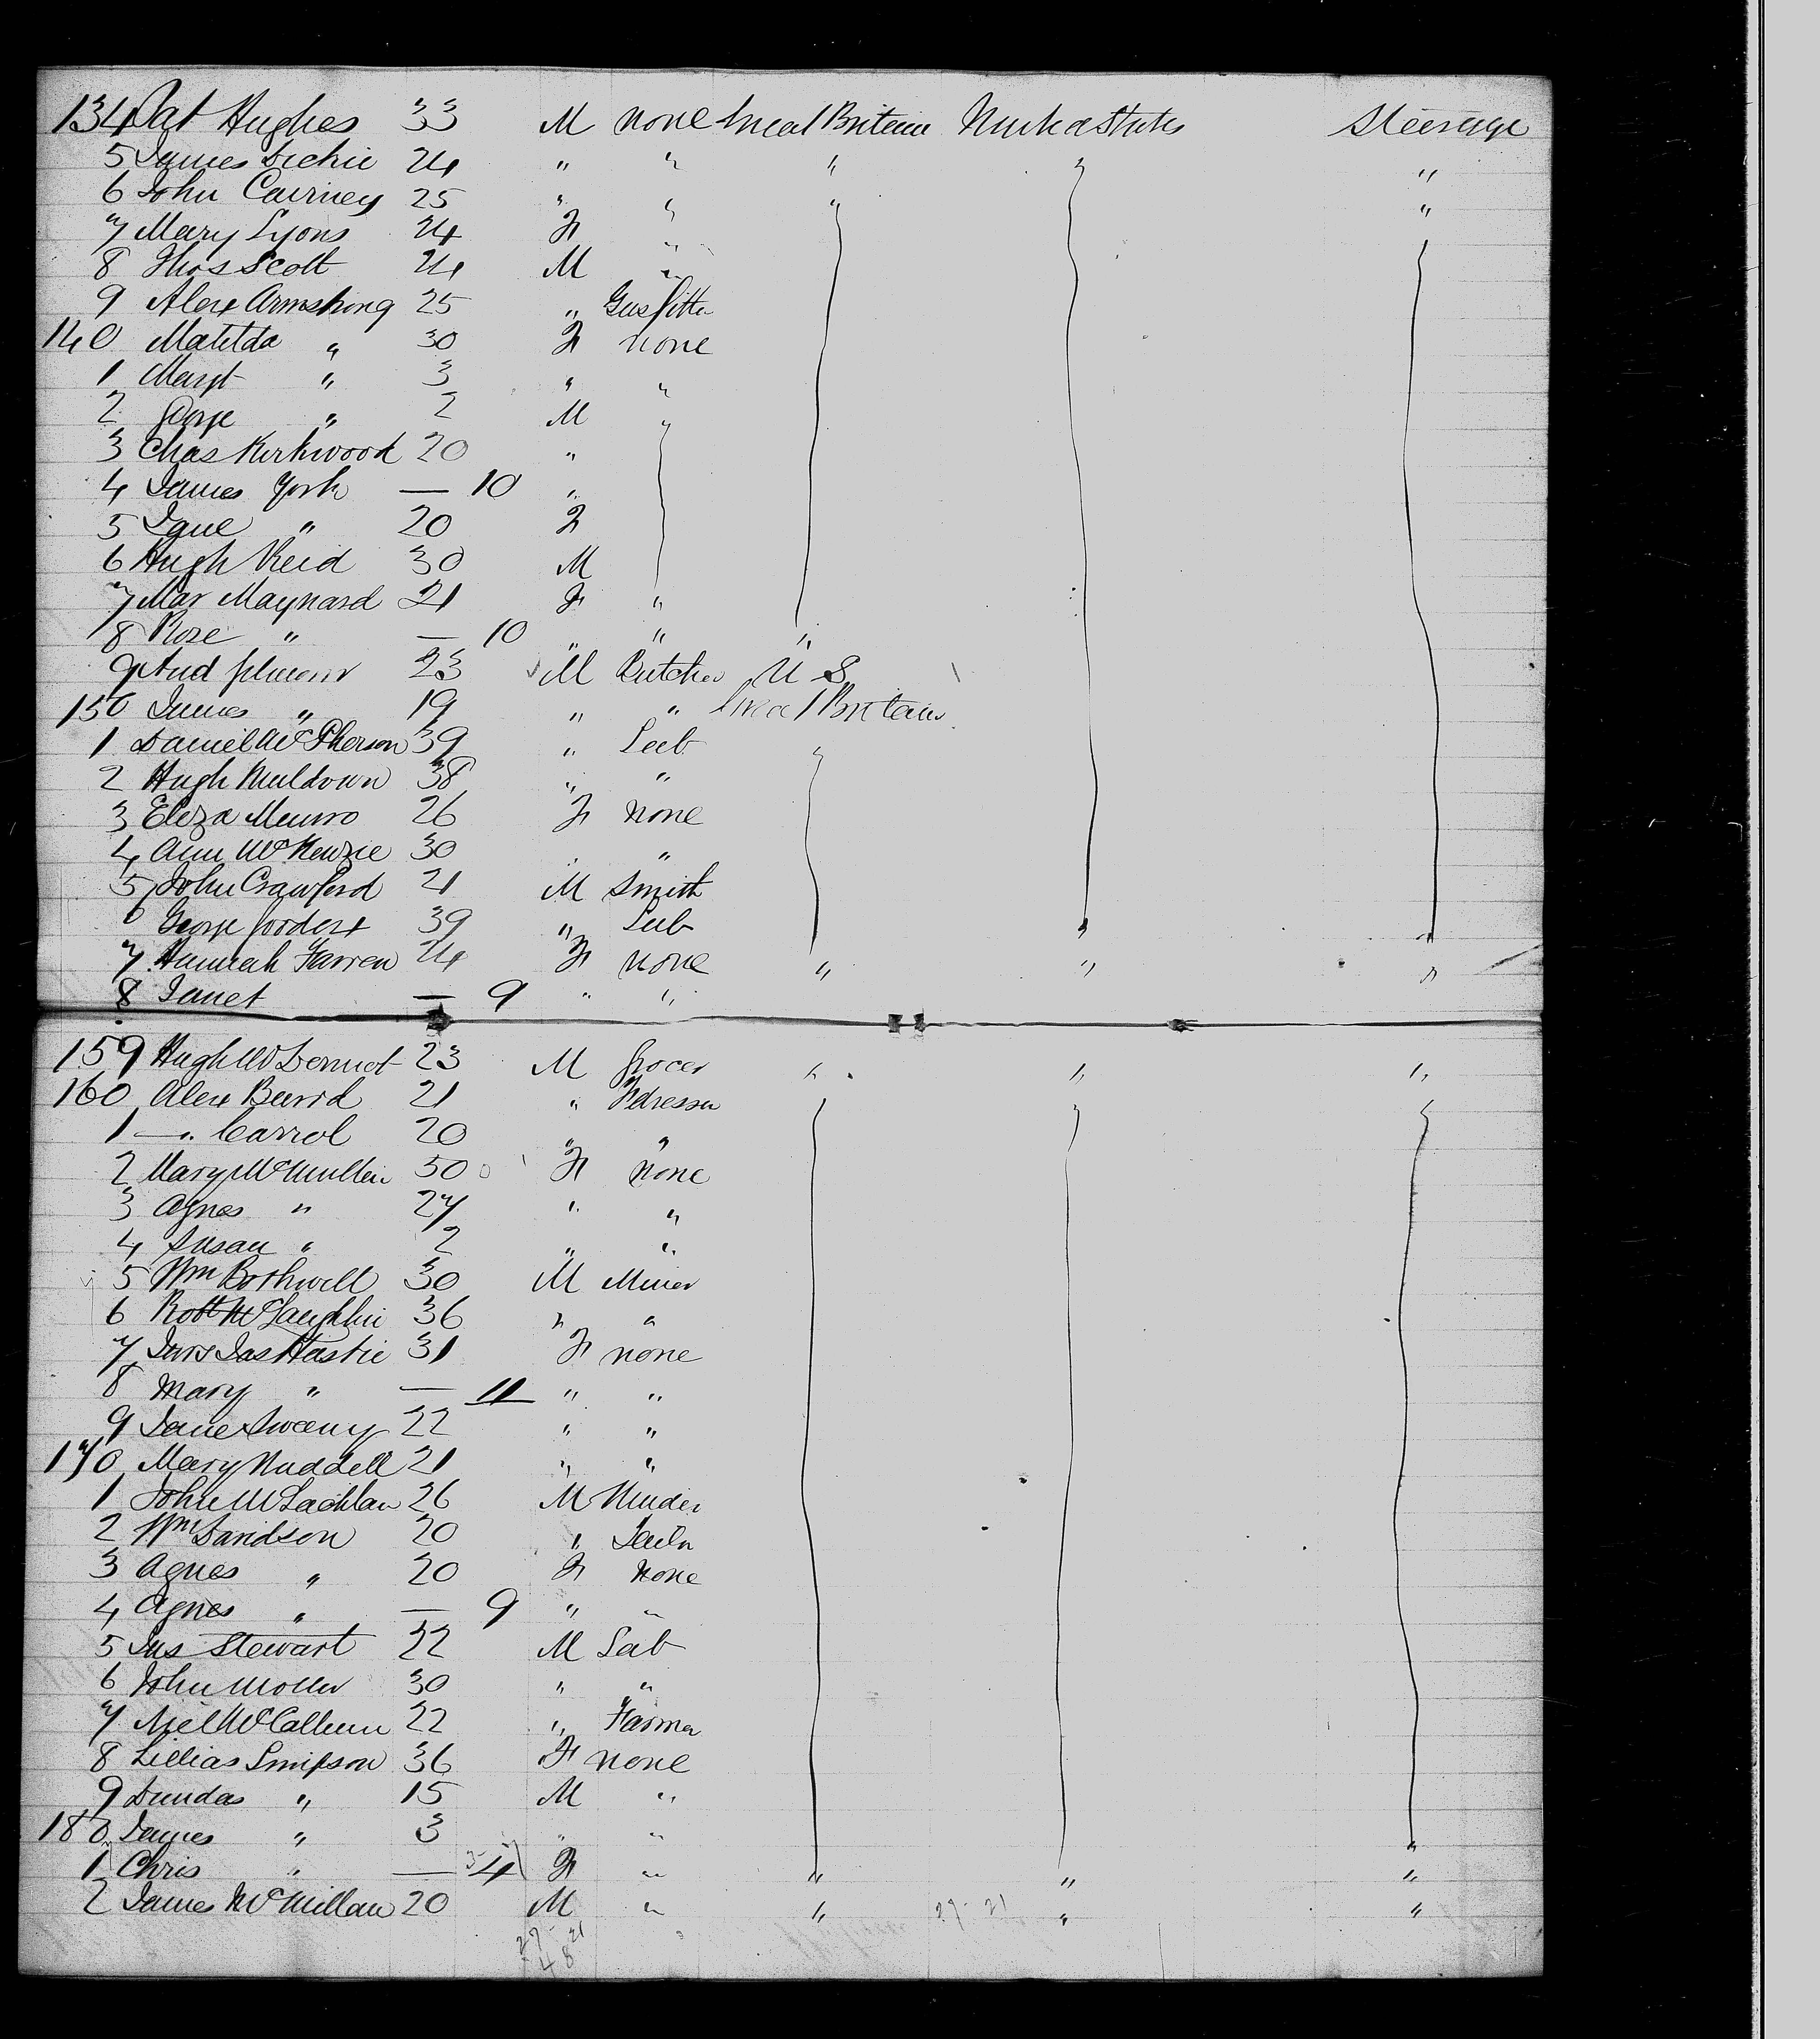 134 Pat Hughes 33 M none Great Britain United States Steerage
5 James Dickie 24 " " " "
6 John Cairney 25 " " " "
7 Mary Lyons 24 F "
8 Thos Scott 24 M "
9 Alex Armstrong 25 " Gasfitter
140 Matilda " 30 F none
1 Margt " 3 " "
2 George " 2 M "
3 Chas Kirkwood 20 "
4 James York — 10 "
5 Jane " 20 F
6 Hugh Reid 30 M
7 Mar Maynard 21 F "
8 Rose " — 10 " " "
9 And 23 M Butcher U S
150 James " 19 " " Great Britain
1 Daniel McPherson 39 " Lab
2 Hugh Muldown 38 " "
3 Eliza Munro 26 F none
4 Ann McKenzie 30 "
5 John Crawford 21 M Smith
6 George 39 " Lab "
7 Hannah Farren 24 F none " " "
8 Janet — 9 " "
159 Hugh McDermot 23 M Grocer " " "
160 Alex Baird 21 " Fdresser
1 — " Carrol 20 " "
2 Mary McMullen 50 F none
3 Agnes " 27 " "
4 Susan " 2 " "
5 Wm Bothwell 30 M Miner
6 Robt McLaughlin 36 " "
7 Jas Hastie 31 F none
8 Mary " — 11 " "
9 Jane Sweeny 22 " "
170 Mary Ruddell 21 " "
1 John McLachlan 26 M
2 Wm Davidson 20 "
3 Agnes " 20 F none
4 Agnes " — 9 " "
5 Jas Stewart 22 M Lab
6 John 30 " "
7 Niel McCallum 22 " Farmer
8 Lillias Simpson 36 F none
9 Dundas " 15 M "
180 James " 3 " " "
1 Chris " — 4 F " " " "
2 James McMillan 20 M " " 27 21 " "
27 21
48